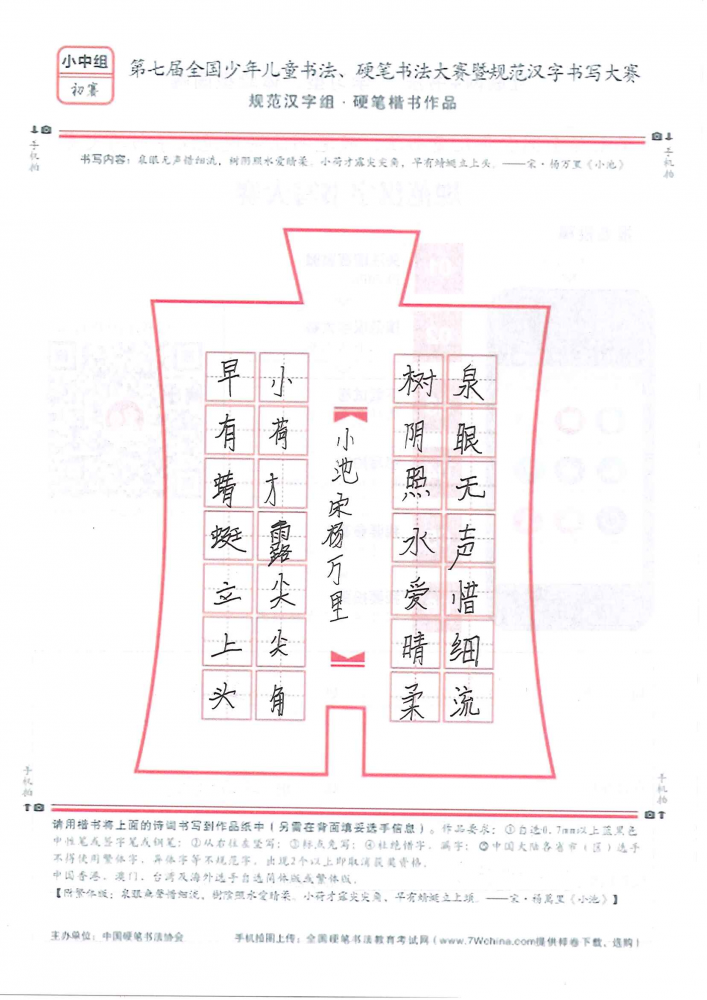 小中组
初赛
第七届全国少年儿童书法、硬笔书法大赛暨规范汉字书写大赛
规范汉字组·硬笔楷书作品
手机拍
手机拍
书写内容：泉眼无声惜细流，树阴照水爱晴柔。小荷才露尖尖角，早有蜻蜓立上头。——宋·杨万里《小池》
泉眼无声惜细流
树阴照水爱晴柔
小池宋杨万里
小荷才露尖尖角
早有蜻蜓立上头
手机拍
手机拍
请用楷书将上面的诗词书写到作品纸中（另需在背面填妥选手信息）。作品要求：①自选0.7mm以上蓝黑色
中性笔或签字笔或钢笔；②从右往左竖写；③标点免写；④杜绝错字、漏字；⑤中国大陆各省市（区）选手
不得使用繁体字、异体字等不规范字，出现2个以上即取消获奖资格。
中国香港、澳门、台湾及海外选手自选简体版或繁体版。
【附繁体版：泉眼無聲惜细流，樹陰照水愛晴柔。小荷才露尖尖角，早有蜻蜓立上頭。——宋·楊萬里《小池》】
主办单位：中国硬笔书法协会
手机拍图上传：全国硬笔书法教育考试网（www.7Wchina.com提供样卷下载、选购）